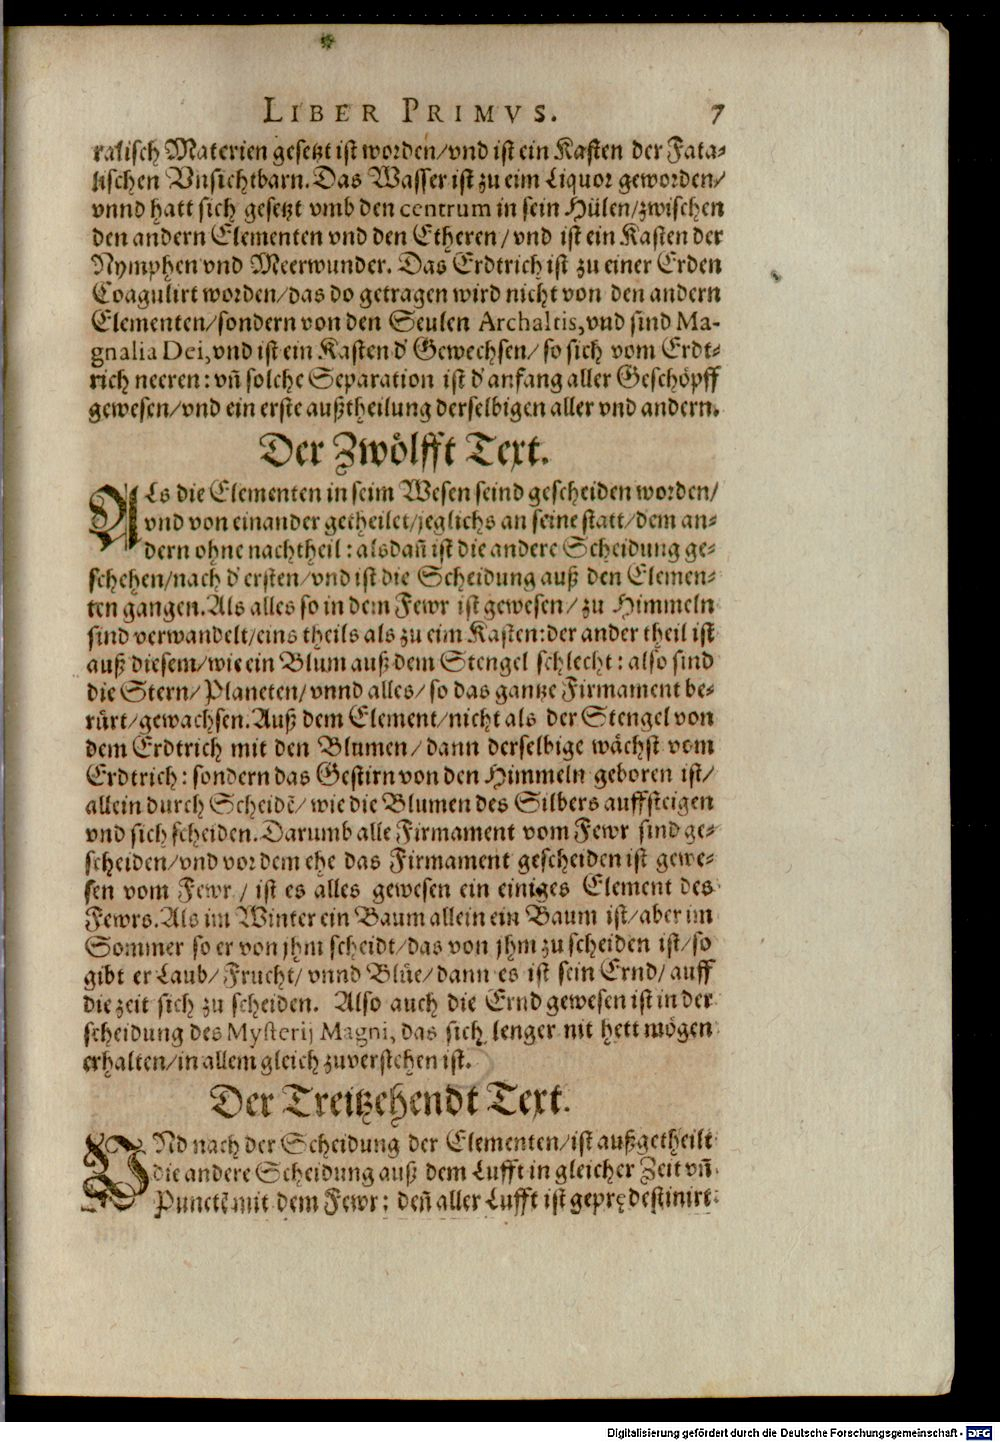 LIBER PRIMVS. 7
ralisch Materien gesetzt ist worden/vnd ist ein Kasten der Fata-
lischen Vnsichtbarn. Das Wasser ist zu eim Liquor geworden/
vnnd hatt sich gesetzt vmb den centrum in sein Hülen/zwischen
den andern Elementen vnd den Etheren/vnd ist ein Kasten der
Nymphen vnd Meerwunder. Das Erdtrich ist zu einer Erden
Coagulirt worden/das do getragen wird nicht von den andern
Elementen/sondern von den Seulen Archaltis, vnd sind Ma-
gnalia Dei, vnd ist ein Kasten d' Gewechsen/so sich vom Erdt-
rich neeren: vn̄ solche Separation ist d' anfang aller Geschöpff
gewesen/vnd ein erste außtheilung derselbigen aller vnd andern.
Der Zwölfft Text.
ALs die Elementen in seim Wesen seind gescheiden worden/
vnd von einander getheilet/jeglichs an seine statt/dem an-
dern ohne nachtheil: alsdañ ist die andere Scheidung ge-
schehen/nach d' ersten/vnd ist die Scheidung auß den Elemen-
ten gangen. Als alles so in dem Fewr ist gewesen/zu Himmeln
sind verwandelt/eins theils als zu eim Kasten: der ander theil ist
auß diesem/wie ein Blum auß dem Stengel schlecht: also sind
die Stern/Planeten/vnnd alles/so das gantze Firmament be-
rürt/gewachsen. Auß dem Element/nicht als der Stengel von
dem Erdtrich mit den Blumen/dann derselbige wächst vom
Erdtrich: sondern das Gestirn von den Himmeln geboren ist/
allein durch Scheidē/wie die Blumen des Silbers auffsteigen
vnd sich scheiden. Darumb alle Firmament vom Fewr sind ge-
scheiden/vnd vor dem ehe das Firmament gescheiden ist gewe-
sen vom Fewr/ist es alles gewesen ein einiges Element des
Fewrs. Als im Winter ein Baum allein ein Baum ist/aber im
Sommer so er von jhm scheidt/das von jhm zu scheiden ist/so
gibt er Laub/Frucht/vnnd Blüe/dann es ist sein Ernd/auff
die zeit sich zu scheiden. Also auch die Ernd gewesen ist in der
scheidung des Mysterij Magni, das sich lenger nit hett mögen
erhalten/in allem gleich zuverstehen ist.
Der Treitzehendt Text.
VNd nach der Scheidung der Elementen/ist außgetheilt
die andere Scheidung auß dem Lufft in gleicher Zeit vn̄
Punctē mit dem Fewr: deñ aller Lufft ist gepredestinirt
Digitalisierung gefördert durch die Deutsche Forschungsgemeinschaft - DFG